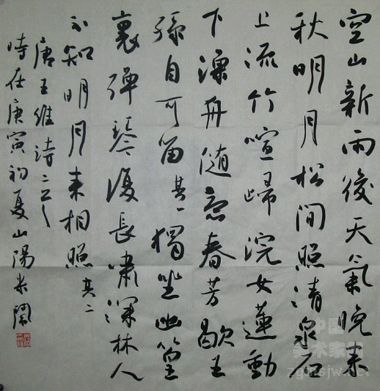 空山新雨後天氣晚来
秋明月松间照清泉石
上流竹喧歸浣女蓮動
下漁舟随意春芳歇王
孫自可留其一獨坐幽篁
裏彈琴復長嘯深林人
不知明月来相照其二
唐王維诗二
時在庚寅初夏山陽米